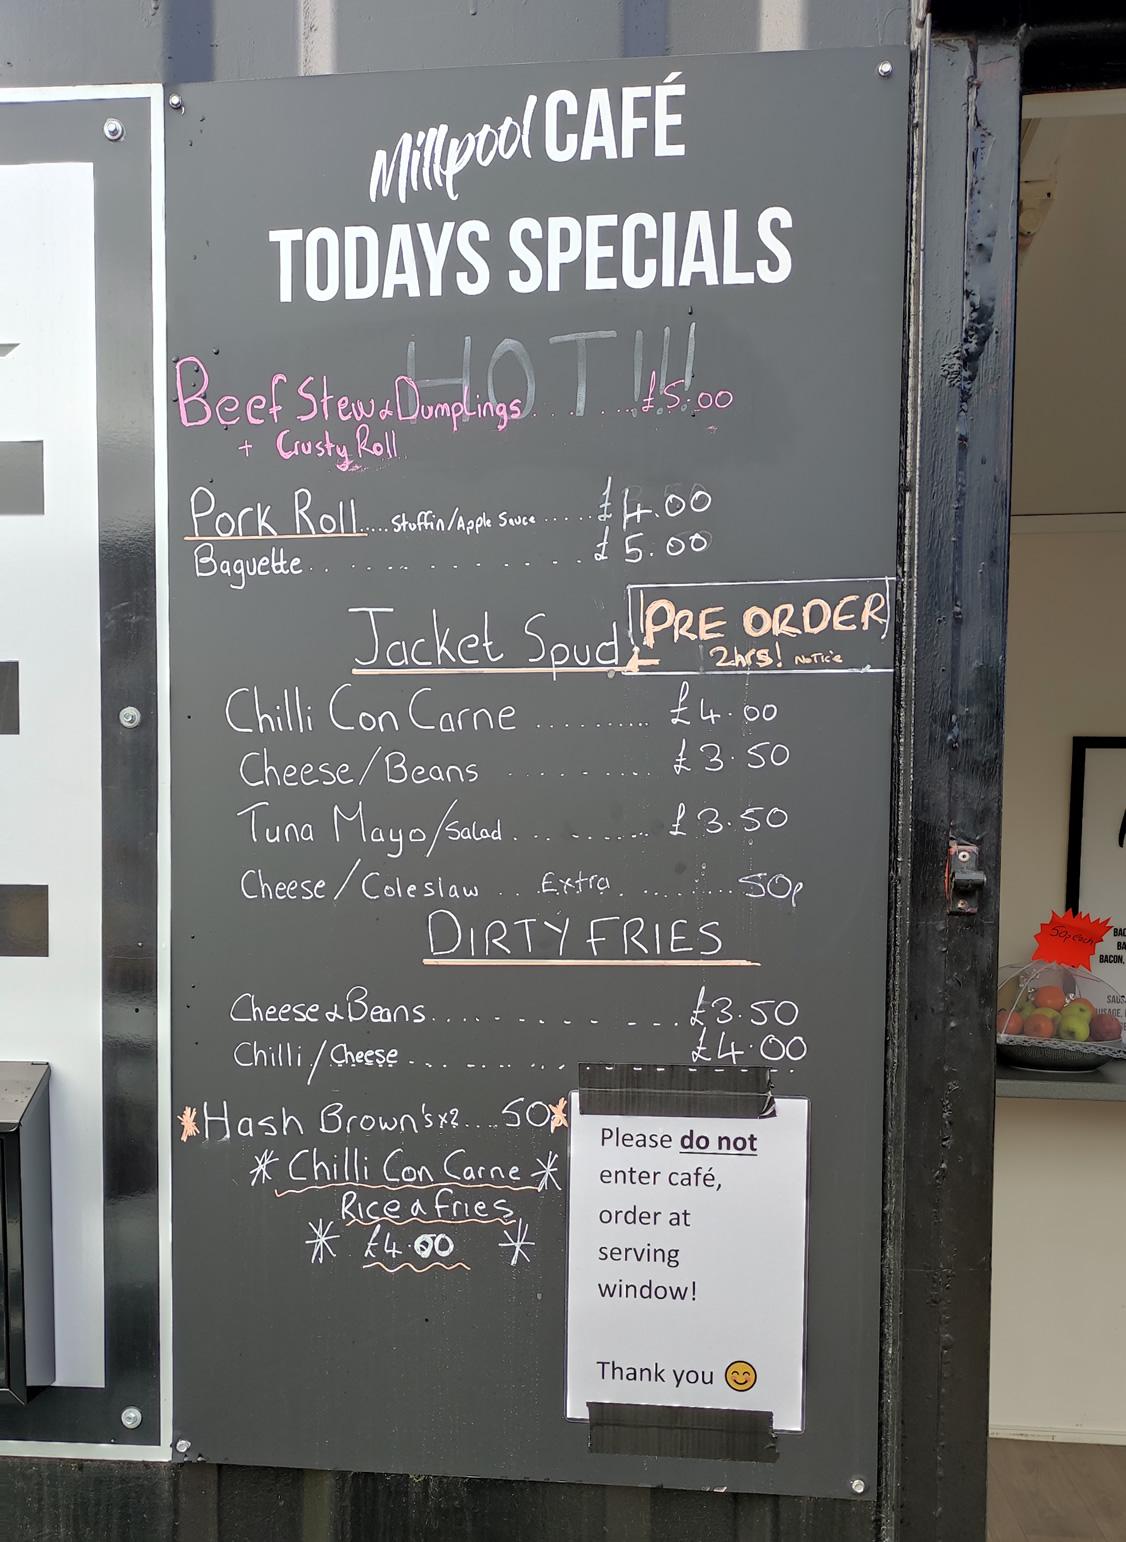 Millpool CAFÉ
TODAYS SPECIALS
HOT!!!
Beef Stew & Dumplings . . . . . . £5.00
+ Crusty Roll
Pork Roll..... Stuffin/Apple Sauce ..... £4.00
Baguette . . . . . . . . . . . . £5.00
Jacket Spud
PRE ORDER
2hrs! NoTice
Chilli Con Carne .......... £4.00
Cheese/Beans ......... £3.50
Tuna Mayo/Salad .......... £3.50
Cheese/Coleslaw .. Extra ......... 50p
DIRTY FRIES
Cheese & Beans............ £3.50
Chilli/Cheese ............ £4.00
*Hash Brown's x2....50*
* Chilli Con Carne *
Rice & Fries
* £4.00 *
Please do not
enter café,
order at
serving
window!
Thank you 😊
50p each
BACON,